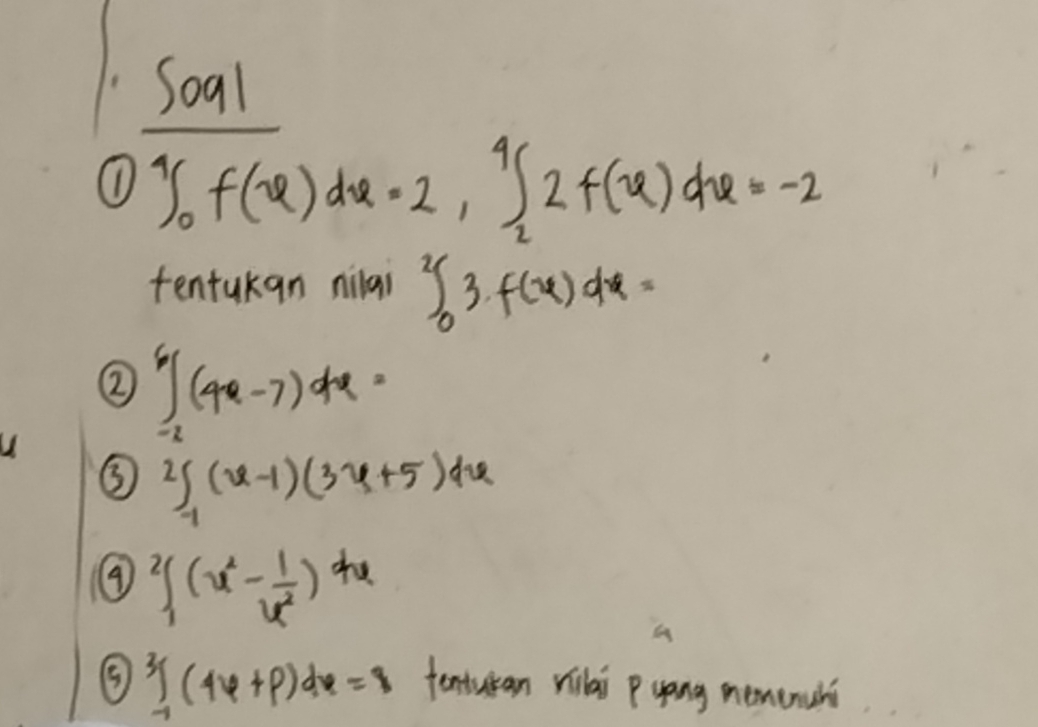 Soal
① ⁴∫₀ f(x) dx = 2 , ⁴∫₂ 2 f(x) dx = -2
tentukan nilai ²∫₀ 3. f(x) dx =
② ⁶∫₋₂ (4x - 7) dx =
③ ²∫₋₁ (x-1)(3x+5) dx
④ ²∫₁ (x² - 1/x²) dx
⑤ ³∫₋₁ (4x + p) dx = 8 tentukan nilai p yang memenuhi